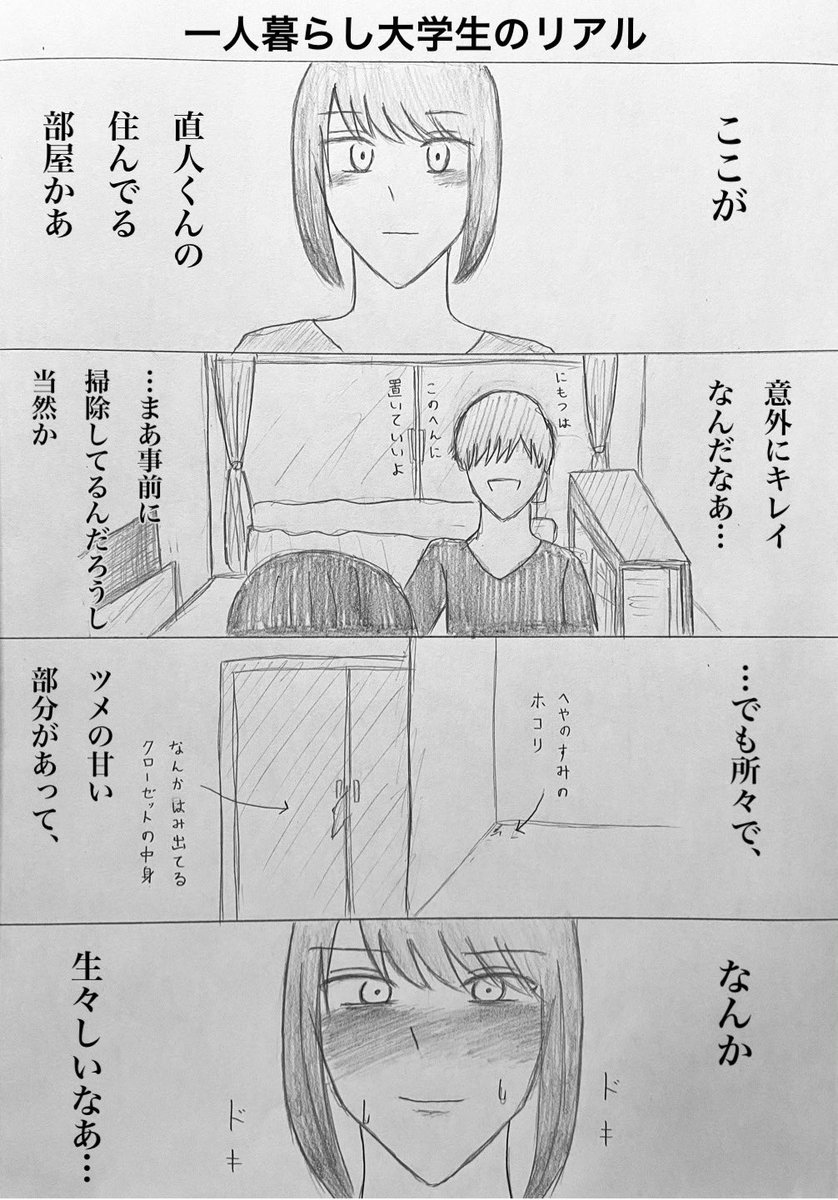 一人暮らし大学生のリアル
ここが
直人くんの
住んでる
部屋かあ
意外にキレイ
なんだなあ…
にもつは
このへんに
置いていいよ
…まあ事前に
掃除してるんだろうし
当然か
…でも所々で、
へやのすみの
ホコリ
ツメの甘い
部分があって、
なんかはみ出てる
クローゼットの中身
なんか
ドキ
生々しいなあ…
ドキ